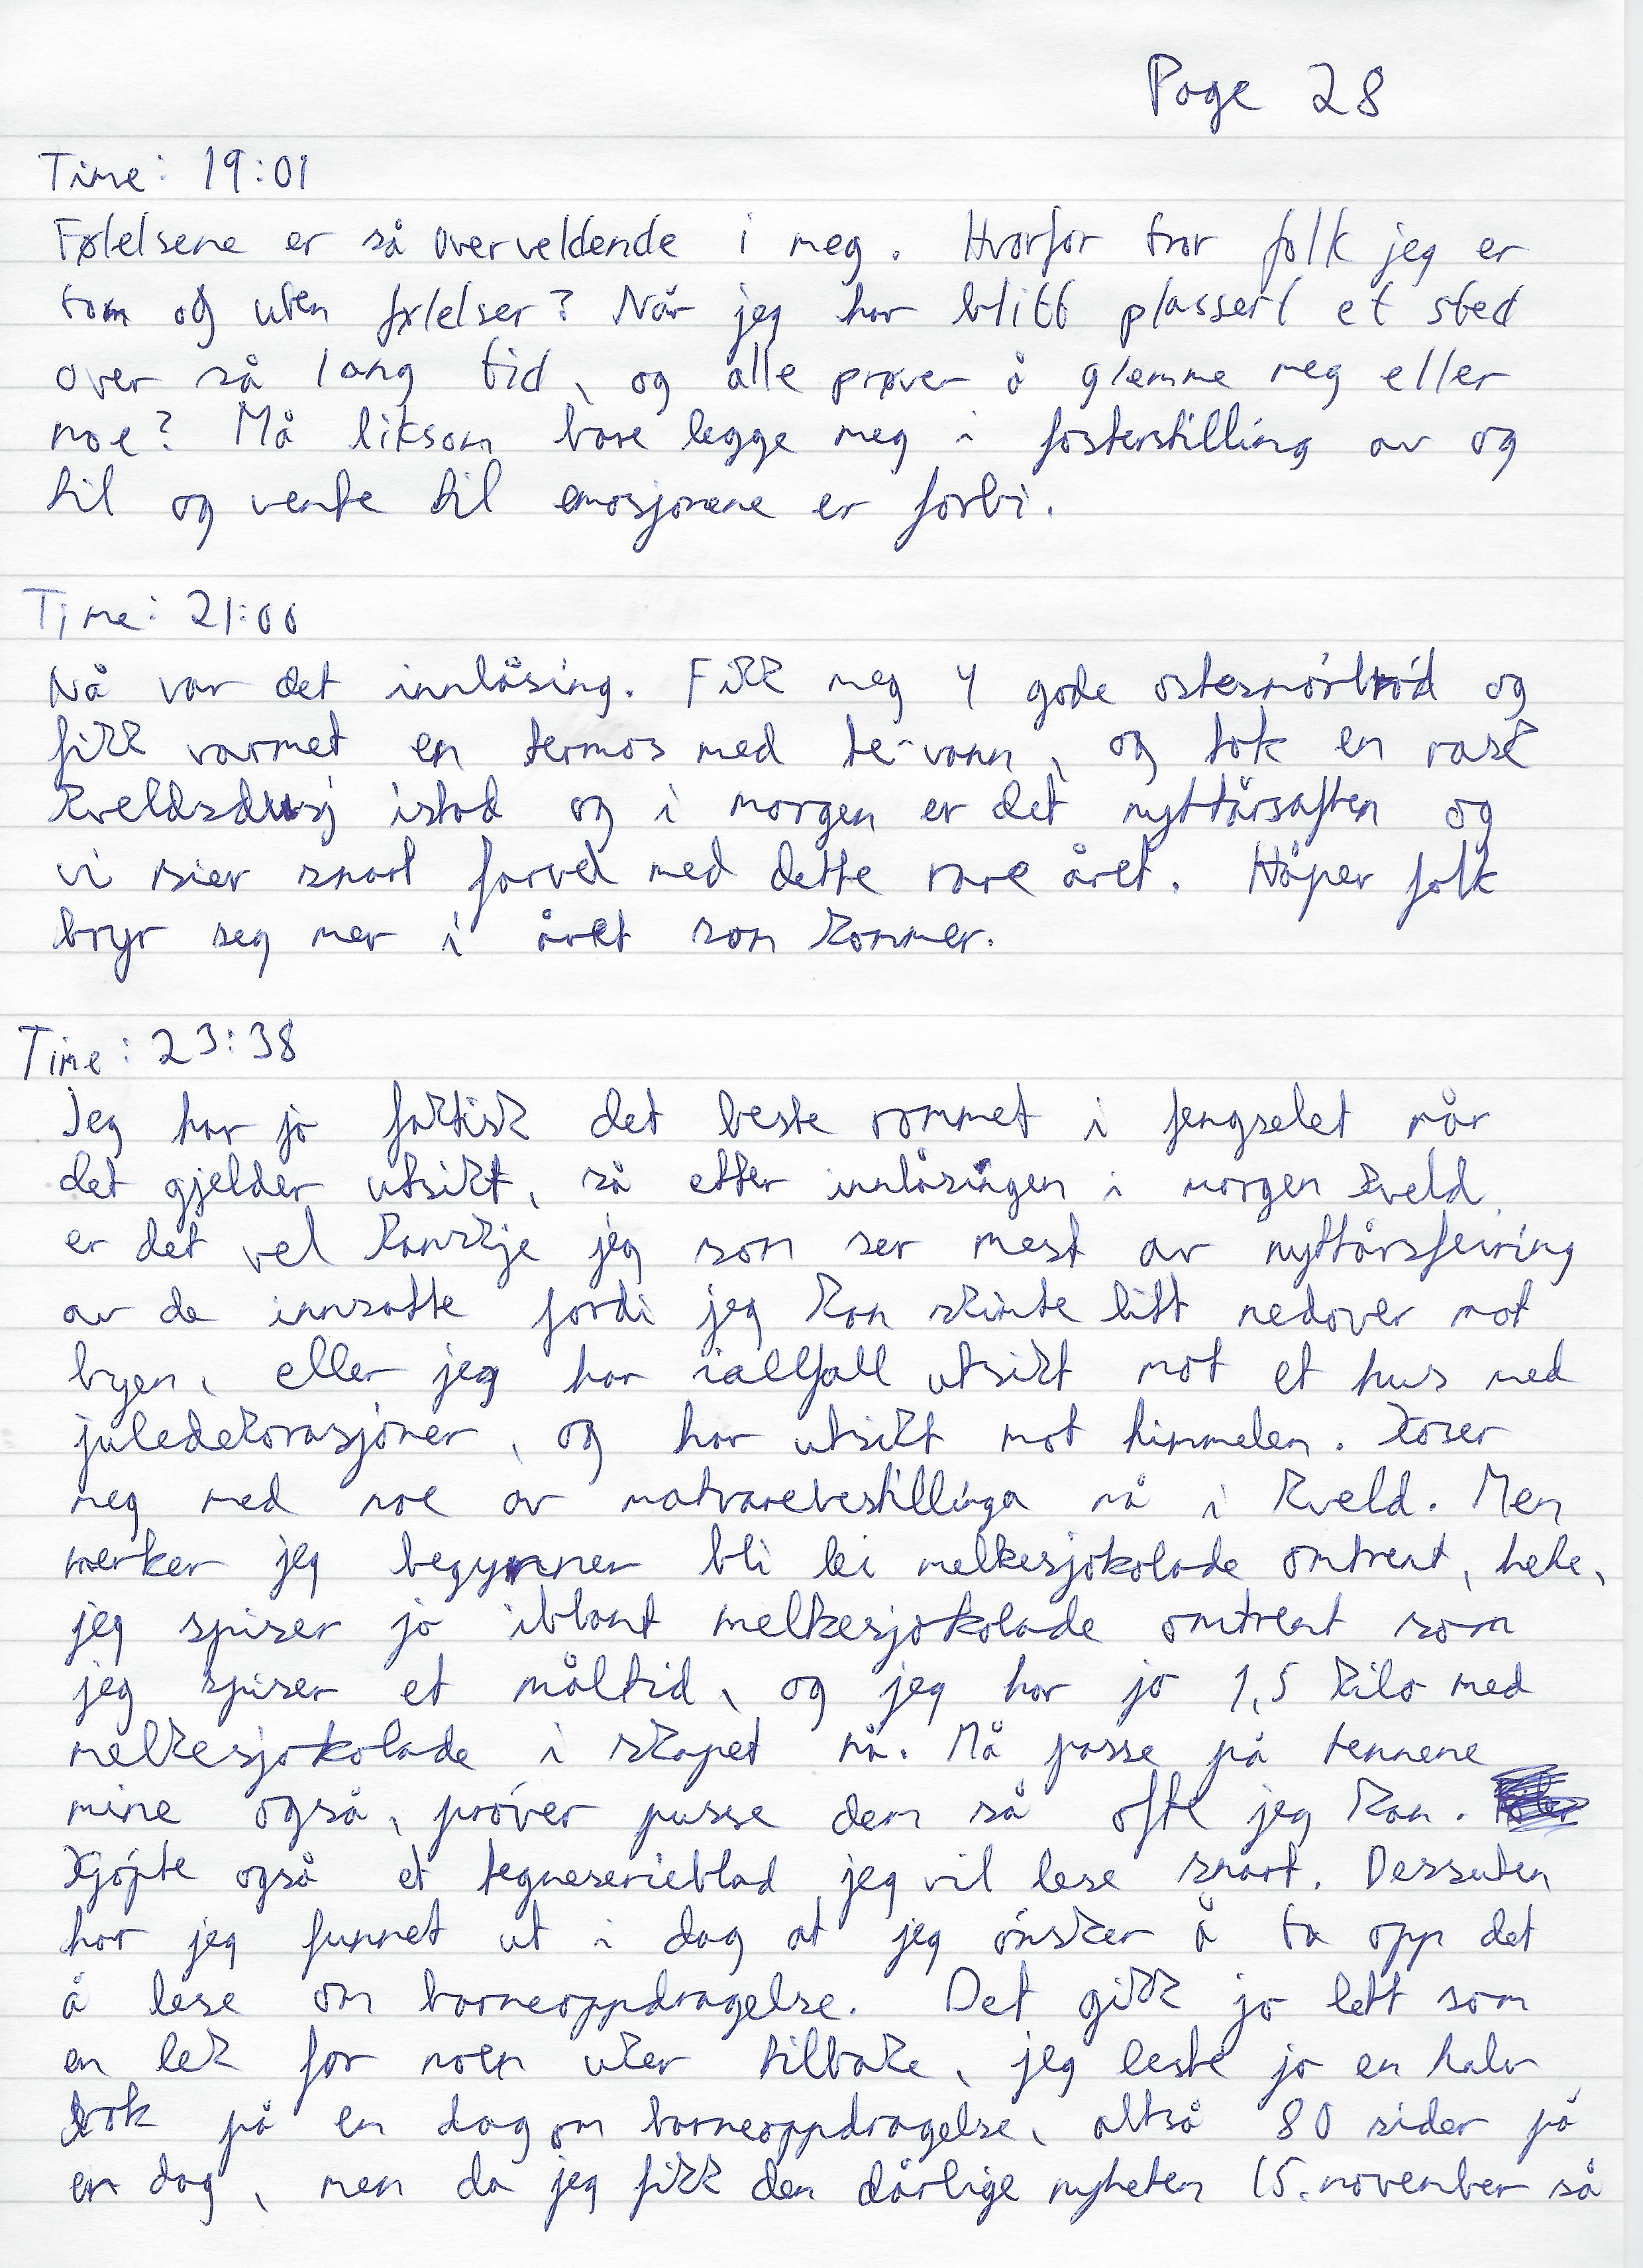 Page 28
Time: 19:01
Følelsene er så overveldende i meg. Hvorfor tror folk jeg er
tom og uten følelser? Når jeg har blitt plassert et sted
over så lang tid, og alle prøver å glemme meg eller
noe? Må liksom bare legge meg i fosterstilling av og
til og vente til emosjonene er forbi.
Time: 21:00
Nå var det innlåsing. Fikk meg 4 gode ostesmørbrød og
fikk varmet en termos med te-vann, og tok en rask
kveldsdusj istad og i morgen er det nyttårsaften og
vi sier snart farvel med dette rare året. Håper folk
bryr seg mer i året som kommer.
Time: 23:38
Jeg har jo faktisk det beste rommet i fengselet når
det gjelder utsikt, så etter innlåsingen i morgen kveld
er det vel kanskje jeg som ser mest av nyttårsfeiring
av de innsatte fordi jeg kan skimte litt nedover mot
byen, eller jeg har iallfall utsikt mot et hus med
juledekorasjoner, og har utsikt mot himmelen. Koser
meg med noe av matvarebestillinga nå i kveld. Men
merker jeg begynner bli lei melkesjokolade omtrent, hehe,
jeg spiser jo iblant melkesjokolade omtrent som
jeg spiser et måltid, og jeg har jo 1,5 kilo med
melkesjokolade i skapet nå. Må passe på tennene
mine også, prøver pusse dem så ofte jeg kan.
Kjøpte også et tegneserieblad jeg vil lese snart. Dessuten
har jeg funnet ut i dag at jeg ønsker å ta opp det
å lese om barneoppdragelse. Det gikk jo lett som
en lek for noen uker tilbake, jeg leste jo en halv
bok på en dag om barneoppdragelse, altså 80 sider på
en dag, men da jeg fikk den dårlige nyheten 15. november så